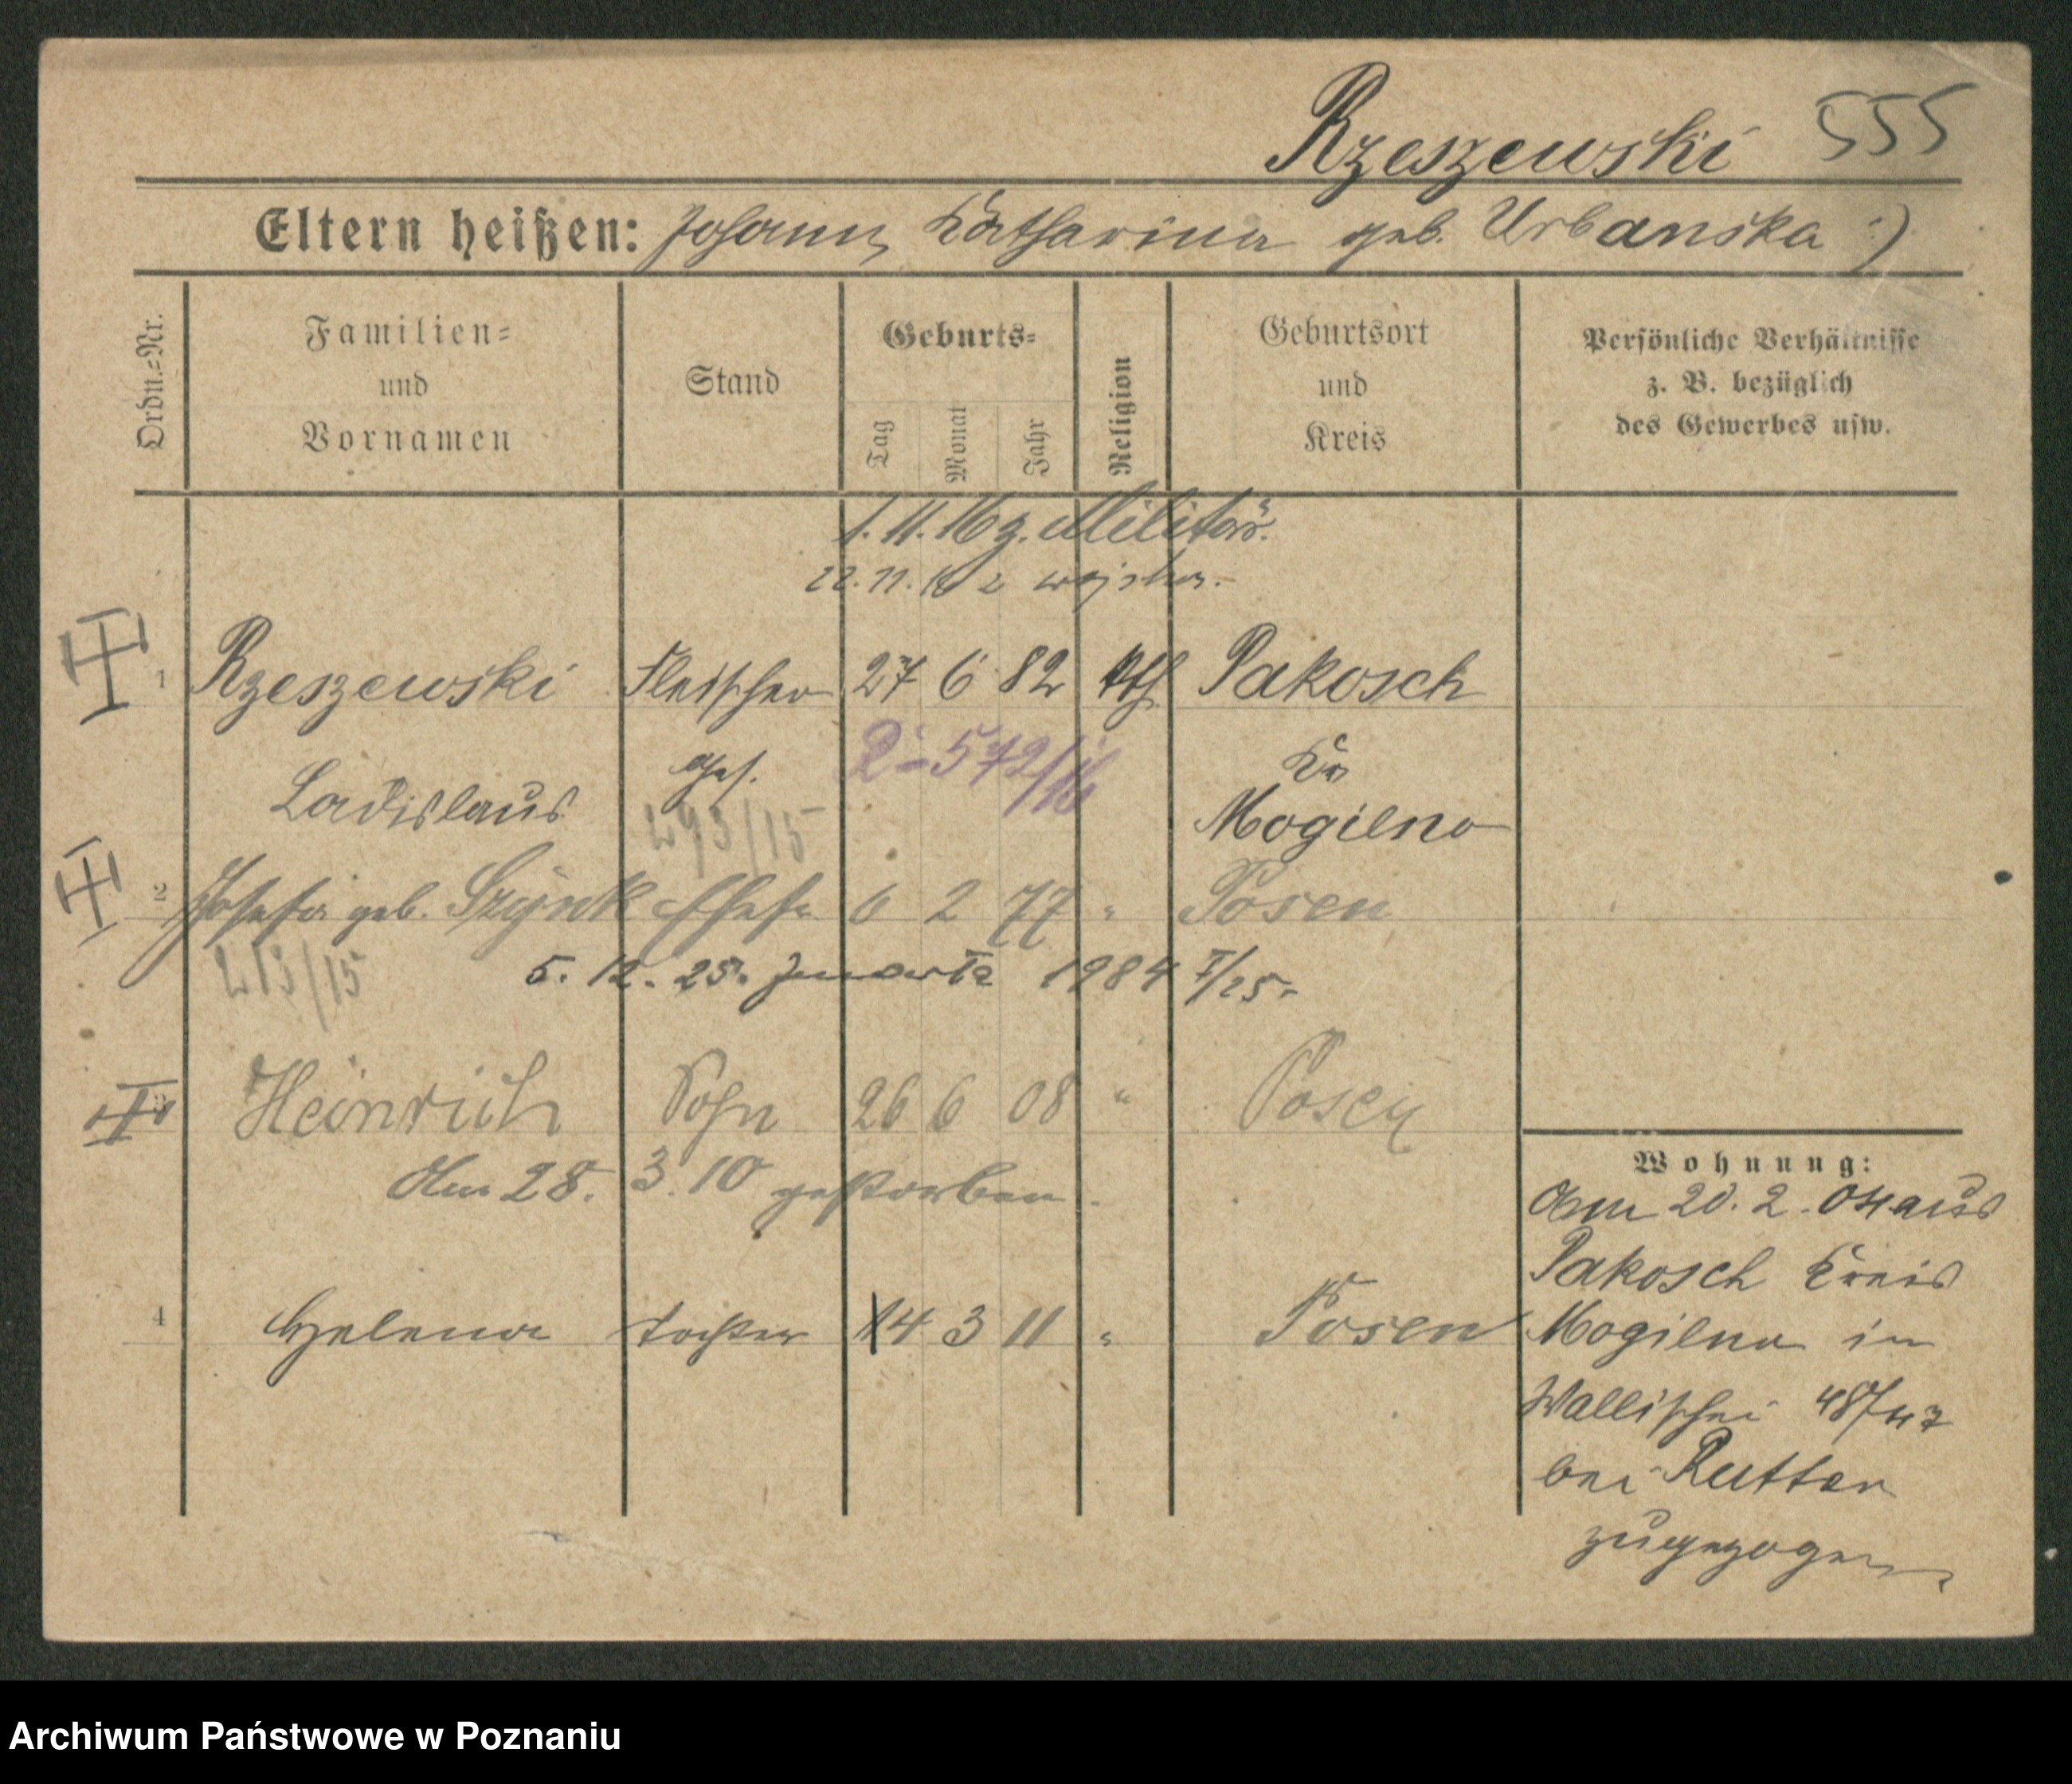 Rzeszewski 555
Eltern heißen: Johann, Katharina geb. Urbanska :)
Ordn.-Nr.
Familien-
und
Vornamen
Stand
Geburts-
Tag Monat Jahr
Religion
Geburtsort
und
Kreis
Persönliche Verhältnisse
z. B. bezüglich
des Gewerbes usw.
1. 11. 16 z. Militär.
22. 11. 18 z wojska.
1 Rzeszewski Fleischer 27 6 82 kth Pakosch
Ladislaus Ges. 572/16 Kr
293/15 Mogilno
2 Josefa geb. Szynk Ehefr. 6 2 77 " Posen
213/15 5. 12. 25. zmarła 1984 I/25.
3 Heinrich Sohn 26 6 08 " Posen
Am 28. 3. 10 gestorben.
4 Helena Tochter 14 3 11 " Posen
Wohnung:
Am 20. 2. 04 aus
Pakosch Kreis
Mogilno in
Wallischei 48/47
bei Rutter
zugezogen
Archiwum Państwowe w Poznaniu